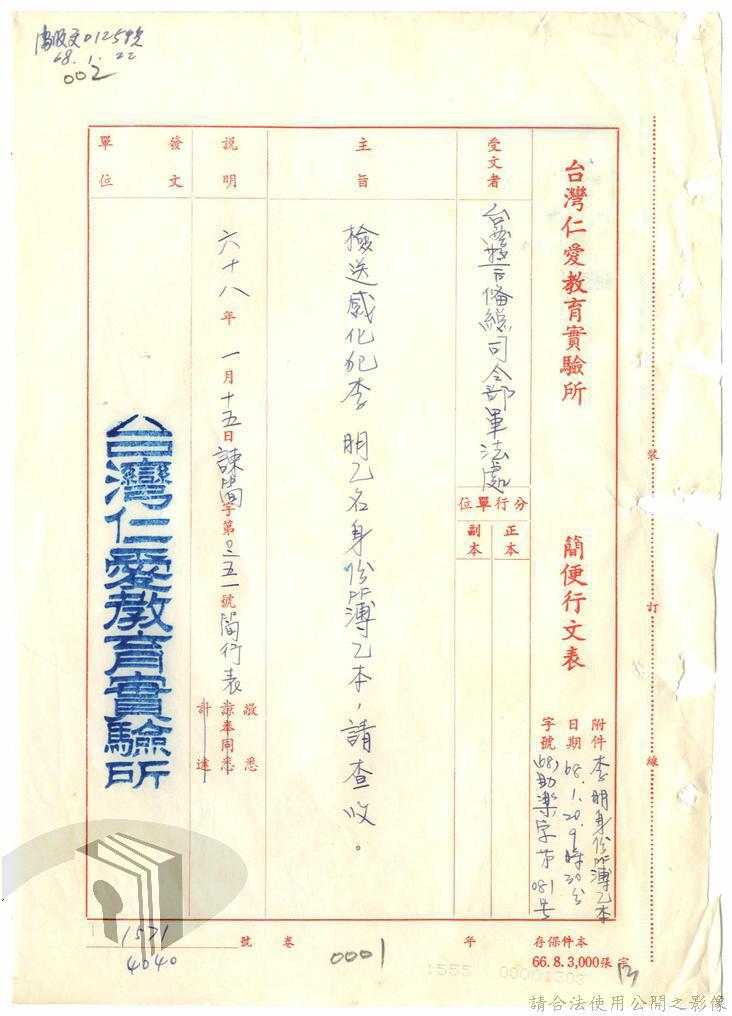 68.1.22
002
台灣仁愛教育實驗所 簡便行文表
附件 李明身份簿乙本
日期 68.1.20.9時30分
字號 (68)助樂字第081号
受文者 台灣警备總司令部軍法處
分行單位
正本
副本
主旨 檢送感化犯李 明乙名身份簿乙本,請查收。
說明 六十八年一月十五日諫簡字第 三五一號簡行表敬悉
諒奉同悉
計達
發文單位 台灣仁愛教育實驗所
裝
訂
線
1571
4040
號
卷
0001
年
本件保存
66.8.3,000張
1555 00001308
請合法使用公開之影像